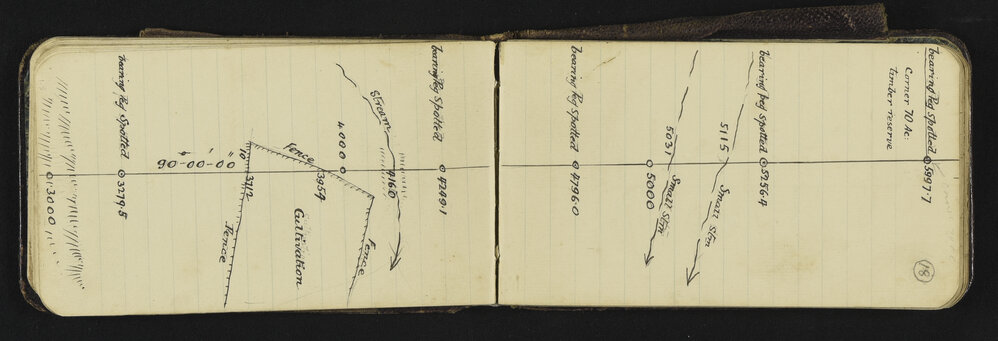 bearing Peg Spotted 5997.7
18
Corner 70 Ac:
timber reserve
bearing peg spotted 5256.4
5115 Small Stm
5031 Small Stm
5000
bearing Peg Spotted 4796.0
bearing Peg Spotted 4249.1
Stream 4160
Fence
4000
3954
Fence
Cultivation
10 3912
Fence
90-00-00
bearing Peg Spotted 3279.5
3000